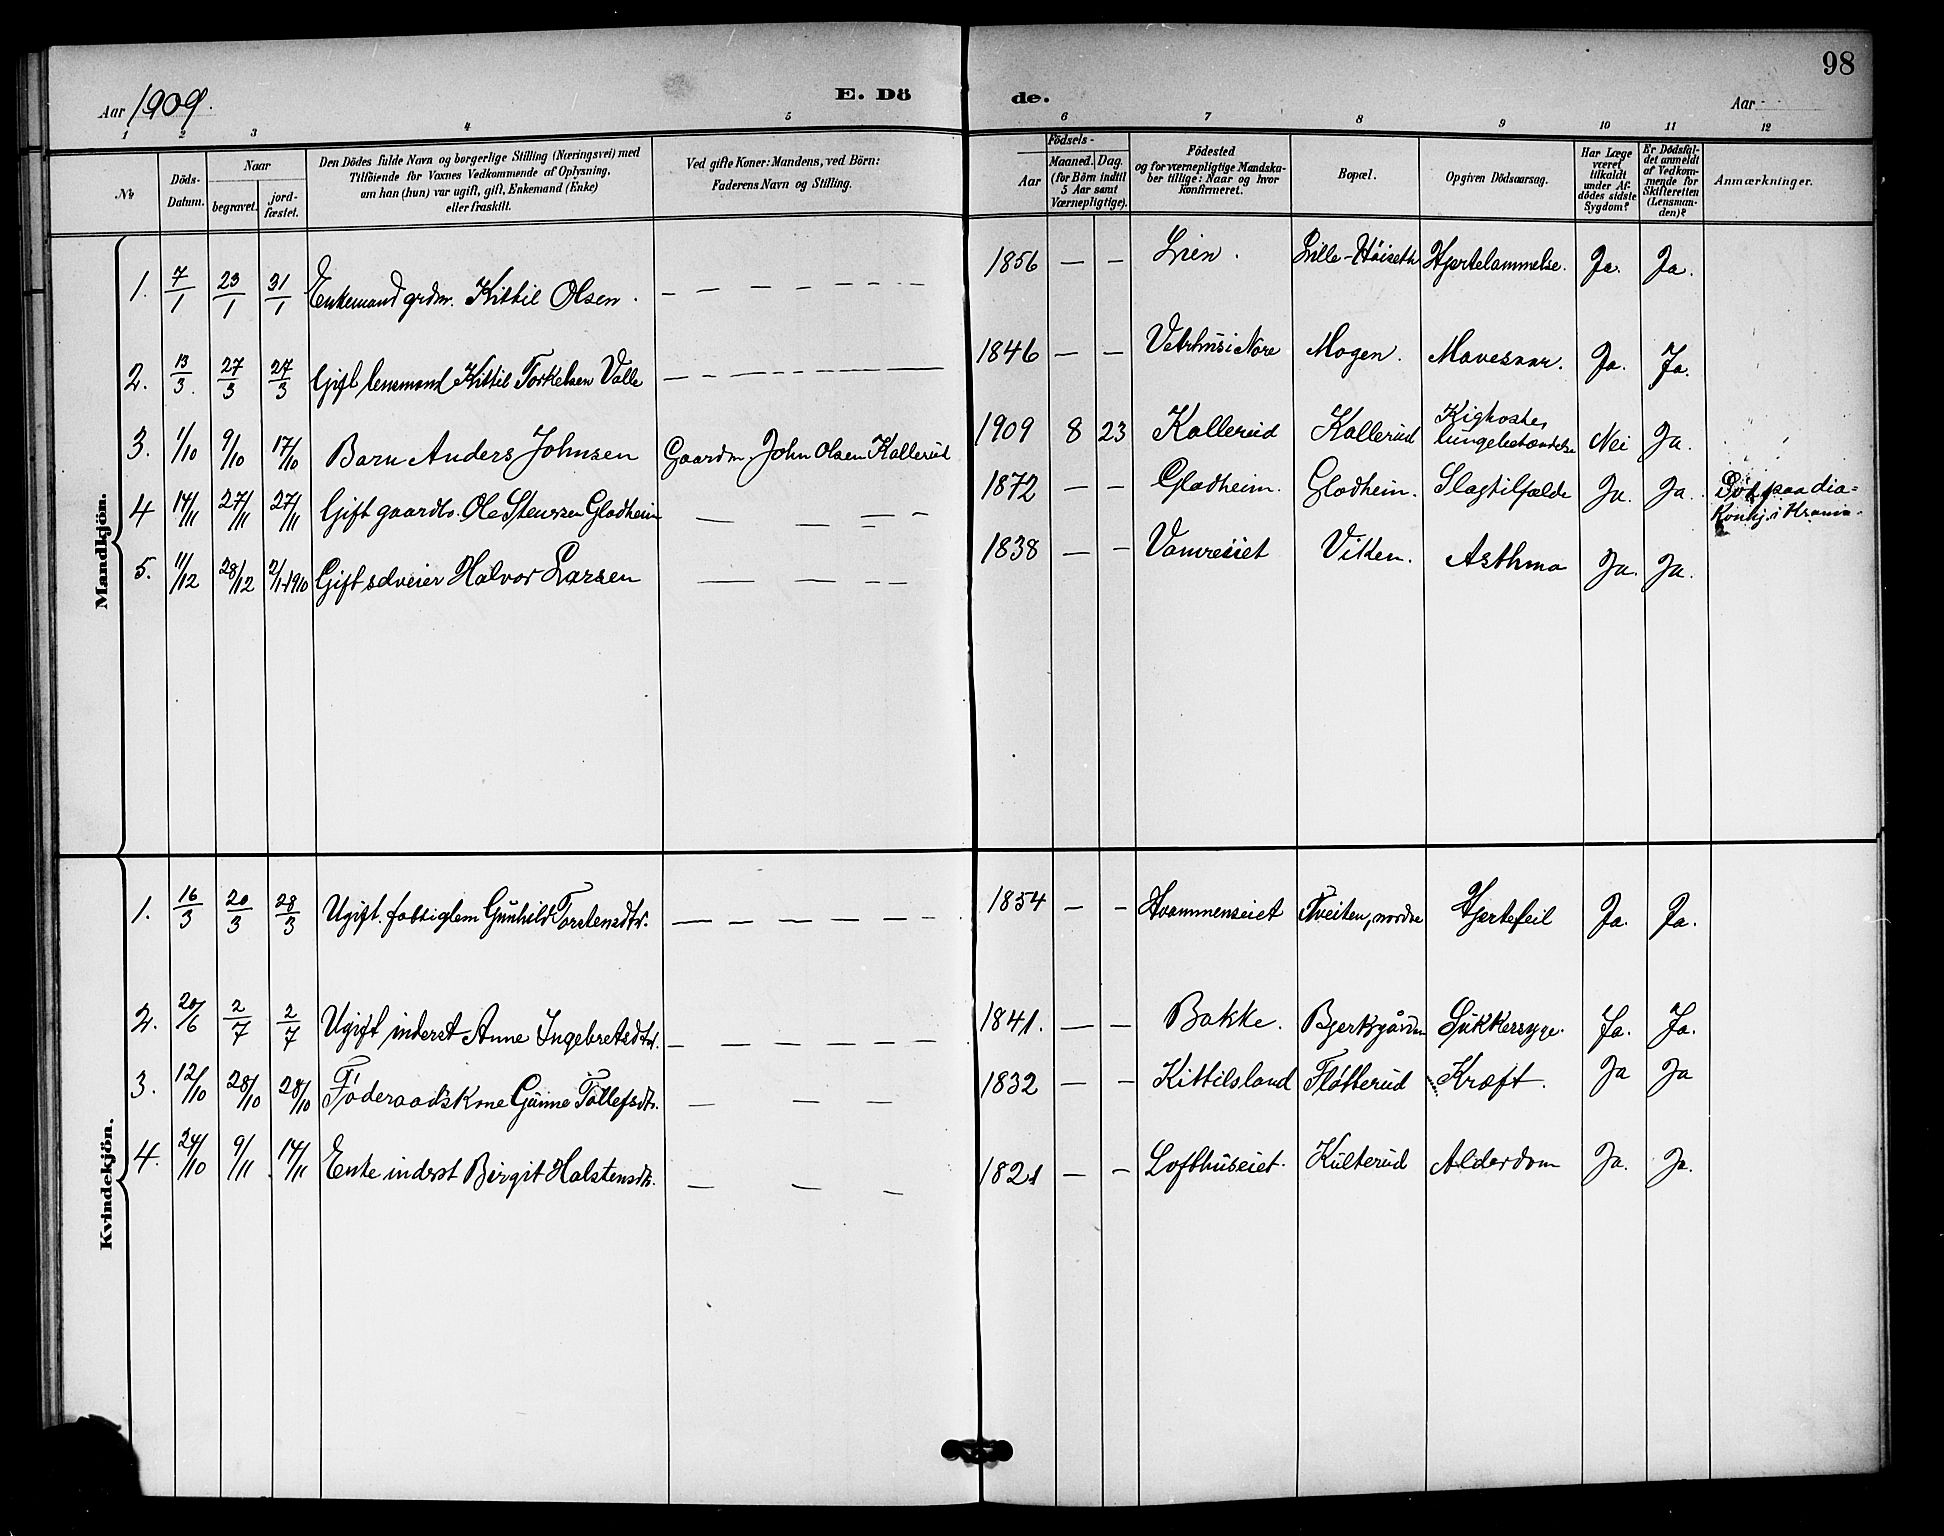 98
Aar 1909.
E. Dö de.
Aar
1 2 3 4 5 6 7 8 9 10 11 12
No
Döds-Datum.
Naar
begravet.
jord-fæstet.
Den Dödes fulde Navn og borgerlige Stilling (Næringsvei) med
Tilföiende for Voxnes Vedkommende af Oplysning,
om han (hun) var ugift, gift, Enkemand (Enke)
eller fraskilt.
Ved gifte Koner: Mandens, ved Börn:
Faderens Navn og Stilling.
Födsels-
Aar
Maaned. Dag.
(for Börn indtil
5 Aar samt
Værnepligtige).
Födested
og for værnepligtige Mandska-
ber tillige: Naar og hvor
konfirmeret.
Bopæl.
Opgiven Dödsaarsag.
Har Læge
været
tilkaldt
under Af-
dödes sidste
Sygdom?
Er Dödsfal-
det anmeldt
af Vedkom-
mende for
Skifteretten
(Lensman-
den)?
Anmærkninger.
Mandkjön.
1. 7/1 23/1 31/1 Enkemand grdm. Kittil Olsen. — — — — — — 1856 — — Lien. Lille-Höiseth Hjertelammelse. Ja. Ja.
2. 13/3. 27/3 27/3 Gift lensmand Kittil Torkelsen Valle — — — — — — 1846 — — Vetrhus i Nore Mogen. Mavesaar. Ja. Ja.
3. 1/10 9/10 17/10 Barn Anders Johnsen Gaardm. John Olsen Kallerud 1909 8 23 Kallerud Kallerud Kighoste, lungebetændelse Nei Ja.
4 14/11 27/11 27/11 Gift gaardbr. Ole Stenersen Gladheim — — — — 1872 — — Gladheim. Gladheim. Slagtilfælde Ja. Ja. Död paa dia-
konhj. i Krania.
5. 11/12 28/12 2/1-1910 Gift selveier Halvor Larsen — — — — 1838 — — Vamreseiet Viken. Asthma Ja. Ja.
Kvindekjön.
1. 16/3 20/3 28/3 Ugift. fattiglem Gunhild Torstensdtr. — — — — — — 1854 — — Hvammenseiet Tveiten, nordre Hjertefeil Ja. Ja.
2. 20/6 2/7 2/7 Ugift inderst Anne Ingebretsdtr. — — — — — — 1841. — — Bakke. Bjerkgården Sukkersyge. Ja. Ja.
3. 12/10 28/10 28/10 Föderaadskone Gunne Tollefsdtr. — — — 1832 — — Kittilsland Fløtterud Kræft. Ja Ja
4. 24/10 9/11 14/11 Enke inderst Birgit Halstensdtr. — — — 1821 — — Lofthuseiet. Kulterud Alderdom Ja. Ja.